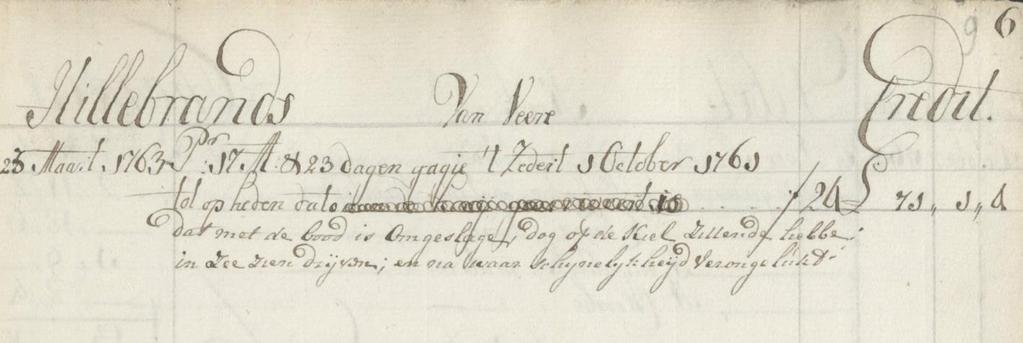 9 6
Hillebrands Van Veere Credit.
23 Maart 1763 Pr: 17 M: & 23 dagen gagie 't Zedert 1 October 1761
tot op heden dato f 24 £ 71,, 1,, 4
dat met de bood is Omgeslage, dog op de Kiel zittende hebbe
in Zee zien dryven; en na waarschynelykheyd verongelukt